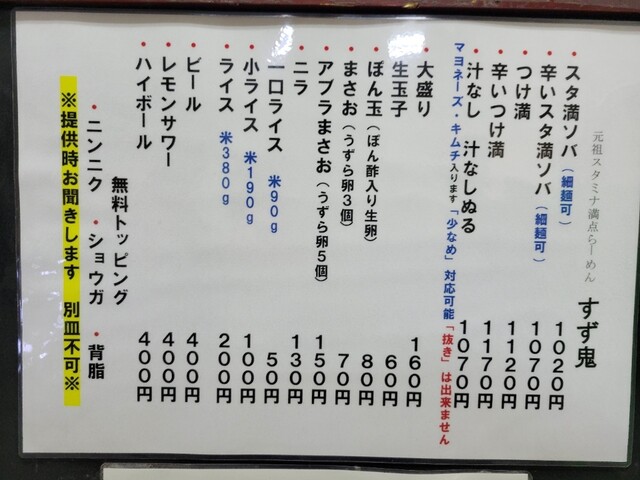 元祖スタミナ満点らーめん すず鬼
・スタ満ソバ（細麺可） 1020円
・辛いスタ満ソバ（細麺可） 1070円
・つけ満 1120円
・辛いつけ満 1170円
・汁なし 汁なしぬる 1070円
マヨネーズ・キムチ入ります「少なめ」対応可能「抜き」は出来ません
・大盛り 160円
・生玉子 60円
・ぽん玉（ぽん酢入り生卵） 80円
・まさお（うずら卵3個） 70円
・アブラまさお（うずら卵5個） 150円
・ニラ 130円
・一口ライス 米90g 50円
・小ライス 米190g 100円
・ライス 米380g 200円
・ビール 400円
・レモンサワー 400円
・ハイボール 400円
無料トッピング
・ニンニク ・ショウガ ・背脂
※提供時お聞きします 別皿不可※